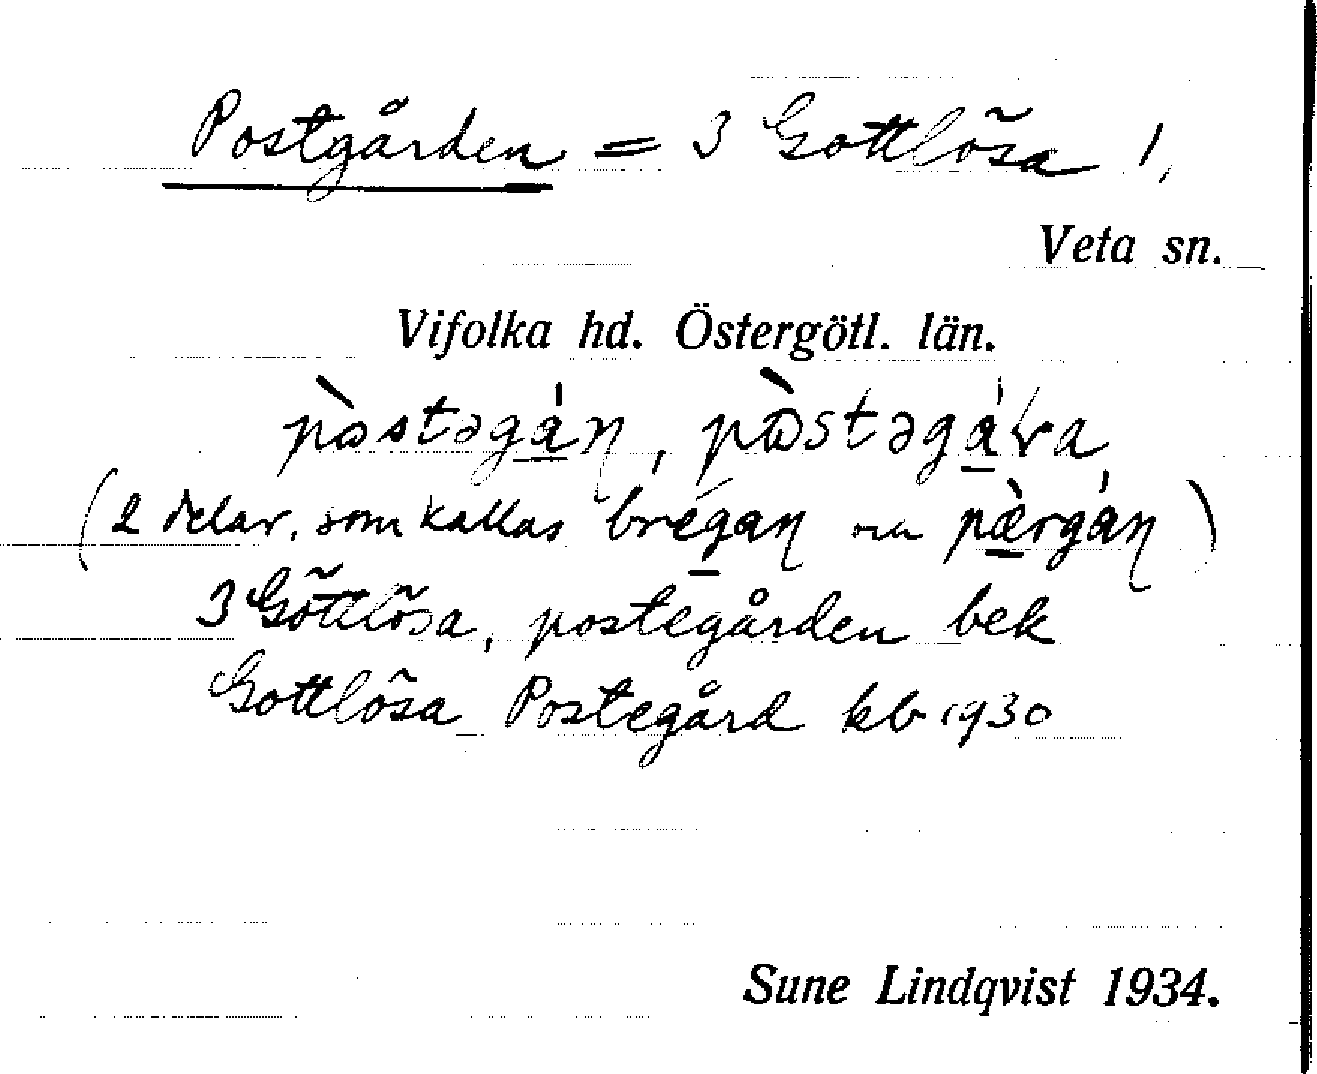 Postgården = 3 Gottlösa 1,
Veta sn.
Vifolka hd. Östergötl. län.
pòstəgán, pòstəgára
(2 delar, som kallas brégan och pæ̀rgán)
3 Göttlösa, postegården bek
Gottlösa Postegård kb 1930
Sune Lindqvist 1934.